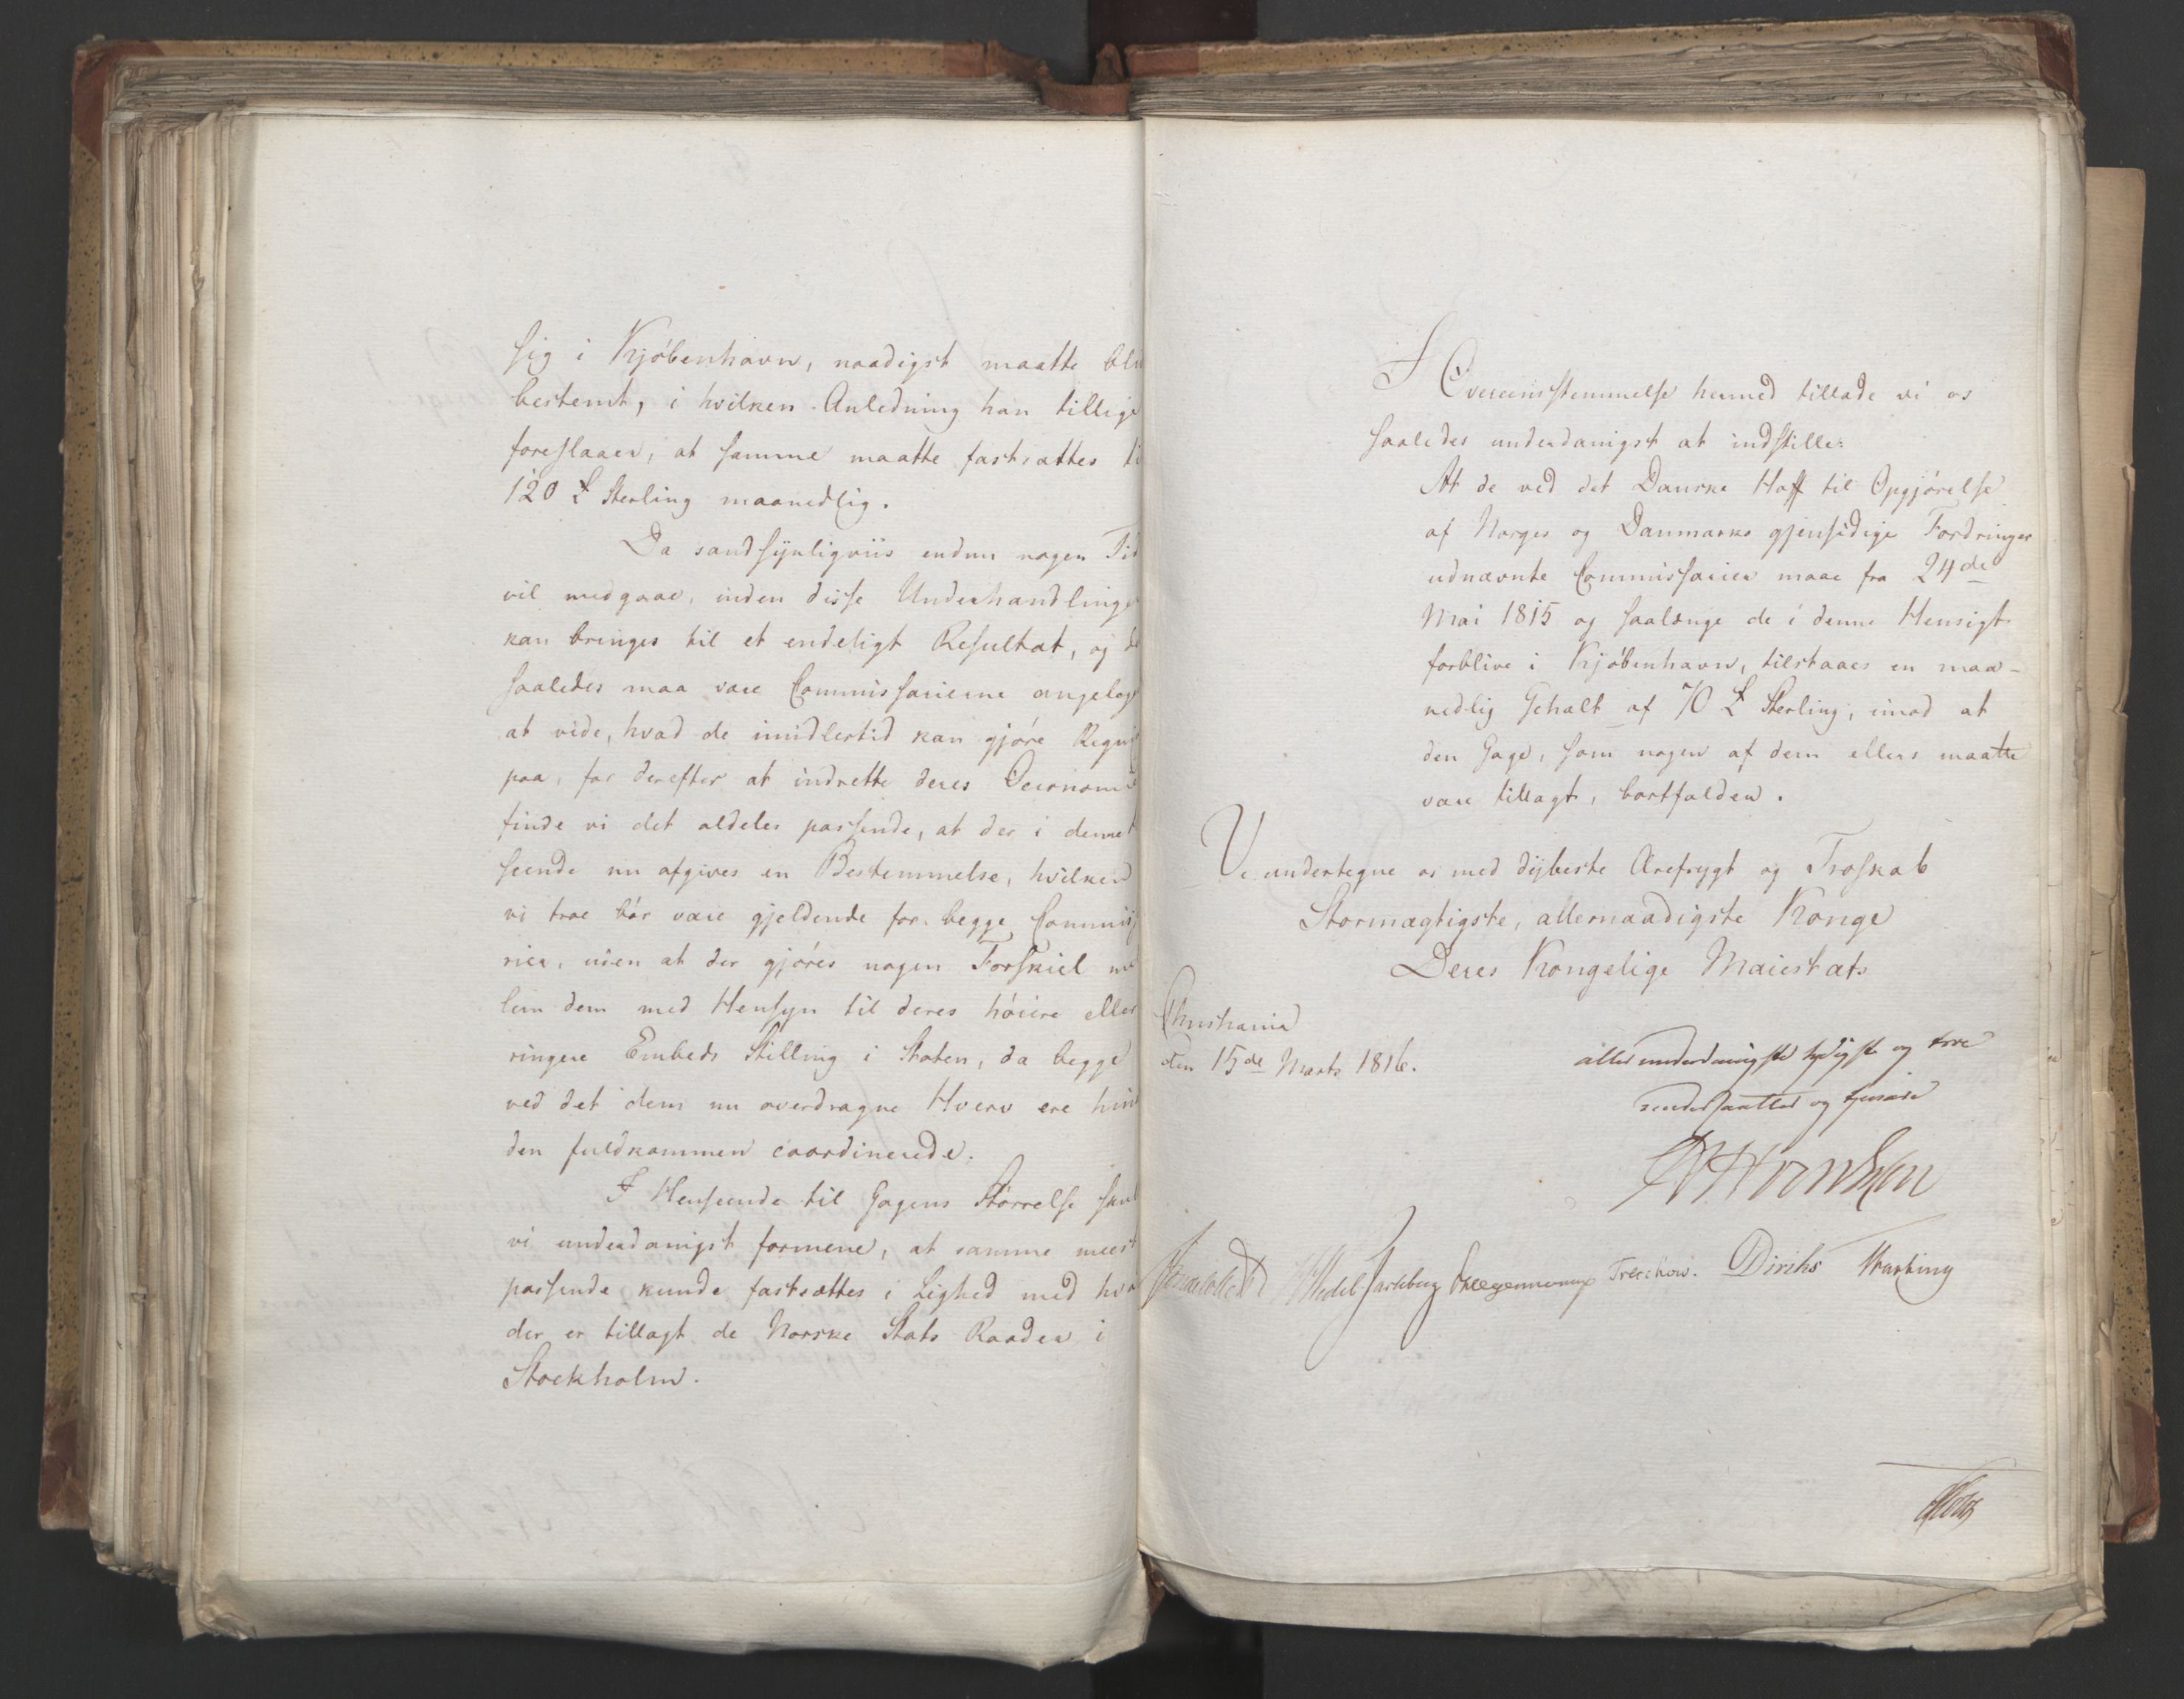 sig i Kjøbenhavn, naadigst maatte bli
bestemt, i hvilken Anledning han tillige
foreslaaer, at samme maatte fastsættes ti
120 £ Sterling maanedlig.
Da sandsynligviis endnu nogen Tid
vil medgaae, inden disse Underhandlinge
kan bringes til et endeligt Resultat, og de
saaledes maa være Commissairerne angelag
at vide, hvad de imidlertid kan gjøre Regni
paa, for derefter at indrette deres Oeconomie
finde vi det aldeles passende, at der i denne
seende nu afgives en Bestemmelse, hvilken
vi troe bør være gjeldende for begge Commis
rier, uden at der gjøres nogen Forskiel me
lem dem med Hensyn til deres høiere eller
ringere Embeds Stilling i Staten, da begge
ved det dem nu overdragne Hverv ere hin
den fuldkommen coordinerede.
I Henseende til Gagens Størrelse skul
vi underdanigst formene, at samme meest
passende kunde fastsættes i Lighed med hva
der er tillagt de Norske Stats Raader i
Stockholm.
I Overeensstemmelse hermed tillade vi os
saaledes underdanigst at indstille:
At de ved det Danske Hoff til Opgjørelse
af Norges og Danmarks gjensidige Fordringer
udnævnte Commissarier maae fra 24de
Mai 1815 og saalænge de i denne Hensigt
forblive i Kjøbenhavn, tilstaaes en maa-
nedlig Gehalt af 70 £ Sterling, imod at
den Gage, som nogen af dem ellers maatte
være tillagt, bortfalder.
Vi undertegne os med dybeste Ærefrygt og Troskab
Stormægtigste, allernaadigste Konge
Deres Kongelige Maiestæts
Christiania
den 15de Marts 1816.
allerunderdanigste lydigste og troe
undersaatter og tjenere
Wedel Jarlsberg Treschow. Diriks